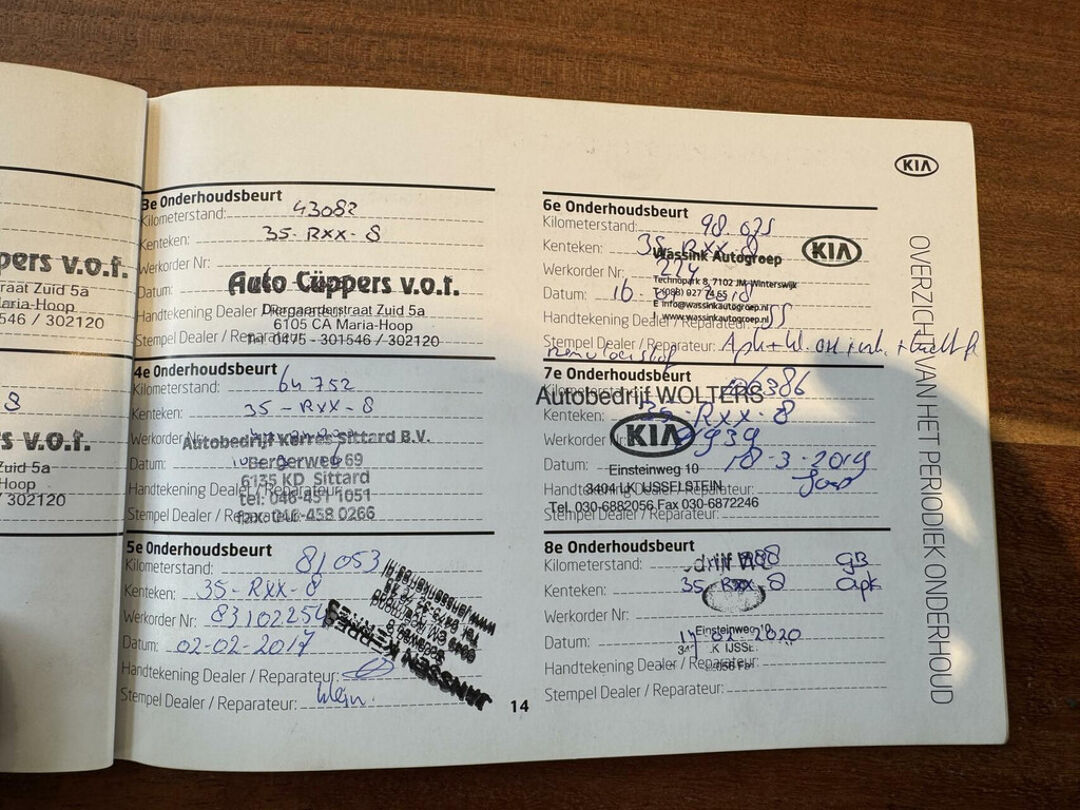 pers v.o.f.
raat Zuid 5a
aria-Hoop
546 / 302120
8
s v.o.f.
Zuid 5a
Hoop
/ 302120
3e Onderhoudsbeurt
Kilometerstand: 43082
Kenteken: 35-RXX-8
Werkorder Nr:
Auto Cüppers v.o.f.
Datum:
Diergaarderstraat Zuid 5a
Handtekening Dealer / Reparateur:
6105 CA Maria-Hoop
Stempel Dealer / Reparateur:
Tel. 0475 - 301546 / 302120
4e Onderhoudsbeurt
Kilometerstand: 64752
Kenteken: 35-RXX-8
Werkorder Nr:
Autobedrijf Kerres Sittard B.V.
Datum:
Bergerweg 69
6135 KD Sittard
Handtekening Dealer / Reparateur:
tel: 046-451 1051
Stempel Dealer / Reparateur:
fax: 046-458 0266
5e Onderhoudsbeurt
Kilometerstand: 81053
Kenteken: 35-RXX-8
Werkorder Nr: 83102254
Datum: 02-02-2017
Handtekening Dealer / Reparateur:
Stempel Dealer / Reparateur:
JANSSEN KERRES
14
KIA
6e Onderhoudsbeurt
Kilometerstand: 98.075
Kenteken: 35-RXX-8
Wassink Autogroep
KIA
Werkorder Nr: 224
Technopark 8, 7102 JM Winterswijk
Datum: 16
E info@wassinkautogroep.nl
I www.wassinkautogroep.nl
Handtekening Dealer / Reparateur:
Stempel Dealer / Reparateur:
7e Onderhoudsbeurt
Kilometerstand: 106386
Autobedrijf WOLTERS
Kenteken: 35-RXX-8
KIA
Werkorder Nr:
Datum: 18-3-2019
Einsteinweg 10
Handtekening Dealer / Reparateur:
3404 LK IJSSELSTEIN
Tel. 030-6882056 Fax 030-6872246
Stempel Dealer / Reparateur:
8e Onderhoudsbeurt
Kilometerstand:
GB
Kenteken: 35-RXX-8 apk
Werkorder Nr:
Einsteinweg 10
Datum: 17-02-2020
Handtekening Dealer / Reparateur:
Stempel Dealer / Reparateur:
OVERZICHT VAN HET PERIODIEK ONDERHOUD